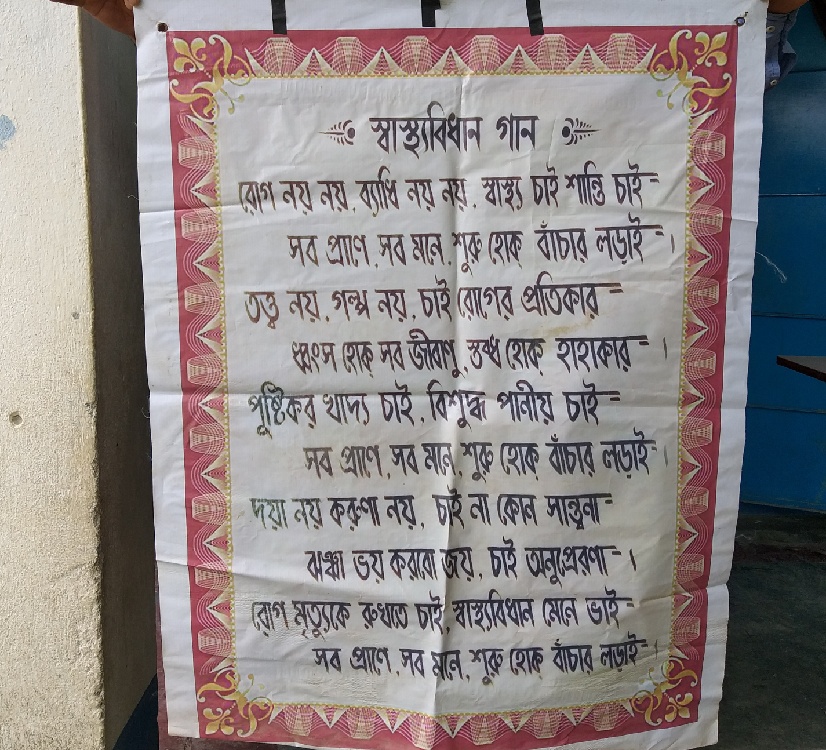 স্বাস্থ্যবিধান গান
রোগ নয় নয়, ব্যাধি নয় নয়, স্বাস্থ্য চাই শান্তি চাই=
সব প্রাণে, সব মনে, শুরু হোক্ বাঁচার লড়াই=।
তত্ত্ব নয়, গল্প নয়, চাই রোগের প্রতিকার=
ধ্বংস হোক্ সব জীবাণু, স্তব্ধ হোক্ হাহাকার=।
পুষ্টিকর খাদ্য চাই, বিশুদ্ধ পানীয় চাই=
সব প্রাণে, সব মনে, শুরু হোক্ বাঁচার লড়াই=।
দয়া নয় করুণা নয়, চাই না কোন সান্ত্বনা=
ঝঞ্ঝা ভয় করবো জয়, চাই অনুপ্রেরণা=।
রোগ মৃত্যুকে রুখতে চাই, স্বাস্থ্যবিধান মেনে ভাই=
সব প্রাণে, সব মনে, শুরু হোক্ বাঁচার লড়াই=।